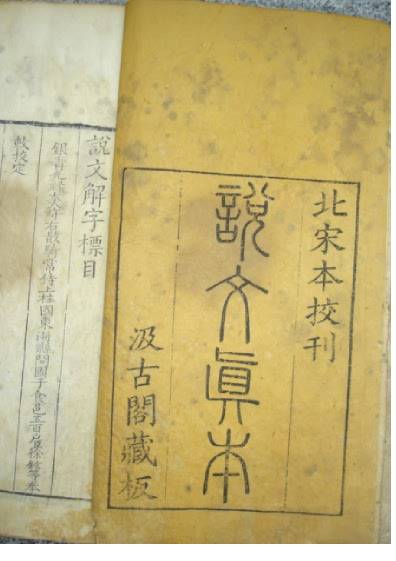 北宋本挍刊
說文眞本
汲古閣藏板
說文解字標目
銀青光祿大夫守右散騎常侍上柱國東海縣開國子食邑五百戶臣徐鉉等奉
敕校定